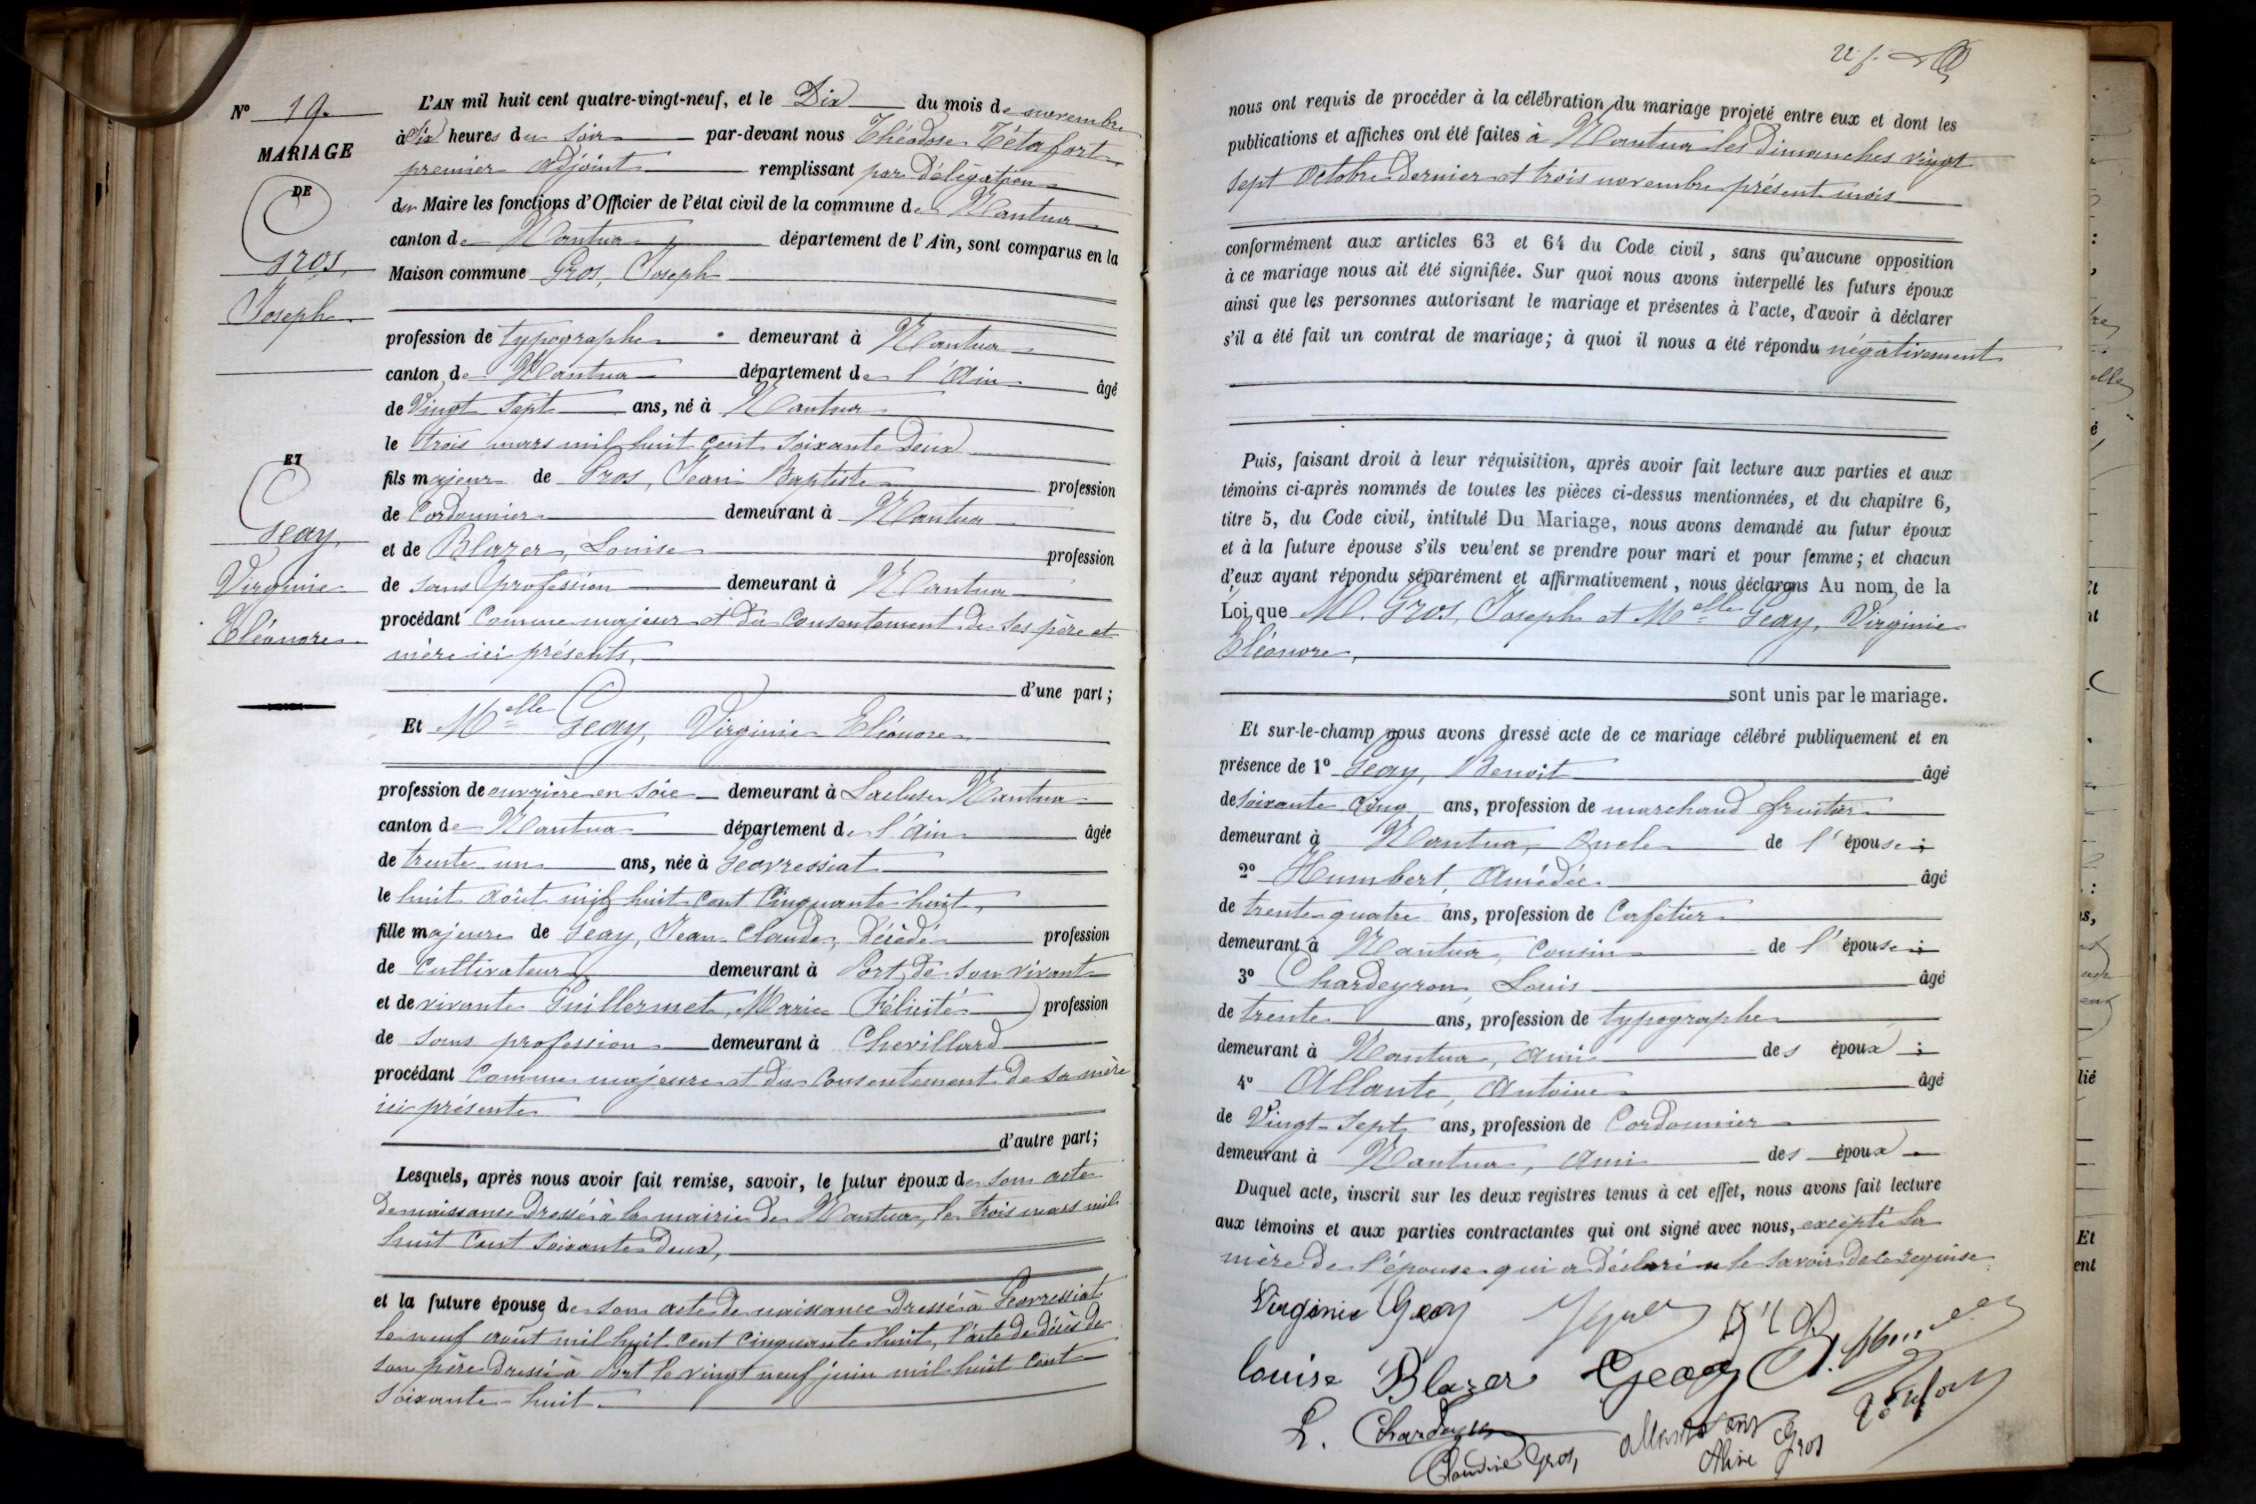 N° 19.
MARIAGE
DE
Gros,
Joseph
ET
Geay,
Virginie
Eléonore
L'AN mil huit cent quatre-vingt-neuf, et le Dix du mois de novembre
à Six heures du Soir par-devant nous Théodose Tétafort
premier adjoint remplissant par délégation
du Maire les fonctions d'Officier de l'état civil de la commune de Nantua
canton de Nantua département de l'Ain, sont comparus en la
Maison commune Gros, Joseph
profession de typographe demeurant à Nantua
canton de Nantua département de l'Ain âgé
de Vingt Sept ans, né à Nantua
le trois mars mil huit cent soixante Deux
fils majeur de Gros, Jean Baptiste profession
de Cordonnier demeurant à Nantua
et de Blazer, Louise profession
de sans profession demeurant à Nantua
procédant Comme majeur et du Consentement de ses père et
mère ici présents,
d'une part;
Et Melle Geay, Virginie Eléonore
profession de ouvrière en soie demeurant à Lacluse Nantua
canton de Nantua département de l'Ain âgée
de trente un ans, née à Geovressiat
le huit Août mil huit cent Cinquante huit,
fille majeure de Geay, Jean Claude, Décédé profession
de Cultivateur demeurant à Port, de son vivant
et de vivante Guillermet, Marie Félicité profession
de sans profession demeurant à Chevillard
procédant Comme majeure et du Consentement de sa mère
ici présente
d'autre part;
Lesquels, après nous avoir fait remise, savoir, le futur époux de son acte
de naissance dressé à la mairie de Nantua, le trois mars mil
huit Cent Soixante Deux,
et la future épouse de son acte de naissance dressé à Geovressiat
le neuf août mil huit cent cinquante huit, l'acte de décès de
son père dressé à Port le vingt neuf juin mil huit Cent
Soixante-huit.
nous ont requis de procéder à la célébration du mariage projeté entre eux et dont les
publications et affiches ont été faites à Nantua les dimanches vingt
sept Octobre Dernier et trois novembre présent mois
conformément aux articles 63 et 64 du Code civil, sans qu'aucune opposition
à ce mariage nous ait été signifiée. Sur quoi nous avons interpellé les futurs époux
ainsi que les personnes autorisant le mariage et présentes à l'acte, d'avoir à déclarer
s'il a été fait un contrat de mariage; à quoi il nous a été répondu négativement
Puis, faisant droit à leur réquisition, après avoir fait lecture aux parties et aux
témoins ci-après nommés de toutes les pièces ci-dessus mentionnées, et du chapitre 6,
titre 5, du Code civil, intitulé Du Mariage, nous avons demandé au futur époux
et à la future épouse s'ils veu'ent se prendre pour mari et pour femme; et chacun
d'eux ayant répondu séparément et affirmativement, nous déclarons Au nom de la
Loi, que M. Gros, Joseph et Melle Geay, Virginie
Eléonore,
sont unis par le mariage.
Et sur-le-champ nous avons dressé acte de ce mariage célébré publiquement et en
présence de 1° Geay, Benoit âgé
de soixante cinq ans, profession de marchand fruitier
demeurant à Nantua, Oncle de l'épouse;
2° Humbert, Amédée âgé
de trente quatre ans, profession de Cafetier
demeurant à Nantua, Cousin de l'épouse;
3° Chardeyron, Louis âgé
de trente ans, profession de typographe
demeurant à Nantua, ami des époux;
4° Allante, Antoine âgé
de Vingt-Sept ans, profession de Cordonnier
demeurant à Nantua, ami des époux
Duquel acte, inscrit sur les deux registres tenus à cet effet, nous avons fait lecture
aux témoins et aux parties contractantes qui ont signé avec nous, excepté la
mère de l'épouse qui a déclaré ne le savoir de ce requise
Virginie Geay
Louise Blazer Geay
L. Chardeyron
Claudine Gros,
Aline Gros